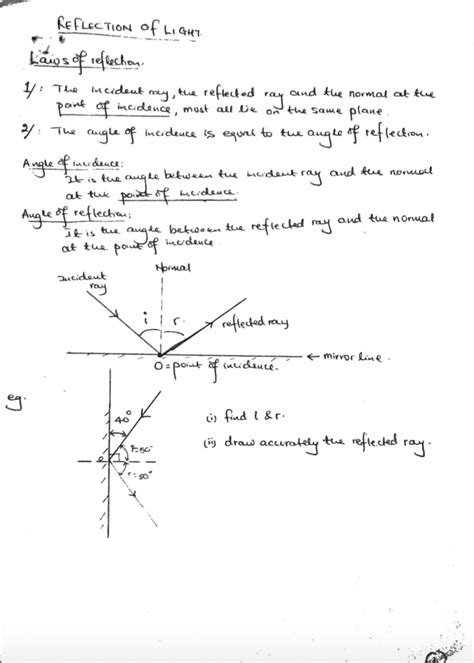 REFLECTION of LIGHT.
Laws of reflection.
1/: The incident ray, the reflected ray and the normal at the
point of incidence, must all lie on the same plane.
2/: The angle of incidence is equal to the angle of reflection.
Angle of incidence:
It is the angle between the incident ray and the normal
at the point of incidence.
Angle of reflection:
It is the angle between the reflected ray and the normal
at the point of incidence.
Normal
Incident
ray
i r.
reflected ray
← mirror line.
O = point of incidence.
eg.
40°
(i) find i & r.
i=50°
(ii) draw accurately the reflected ray.
r=50°